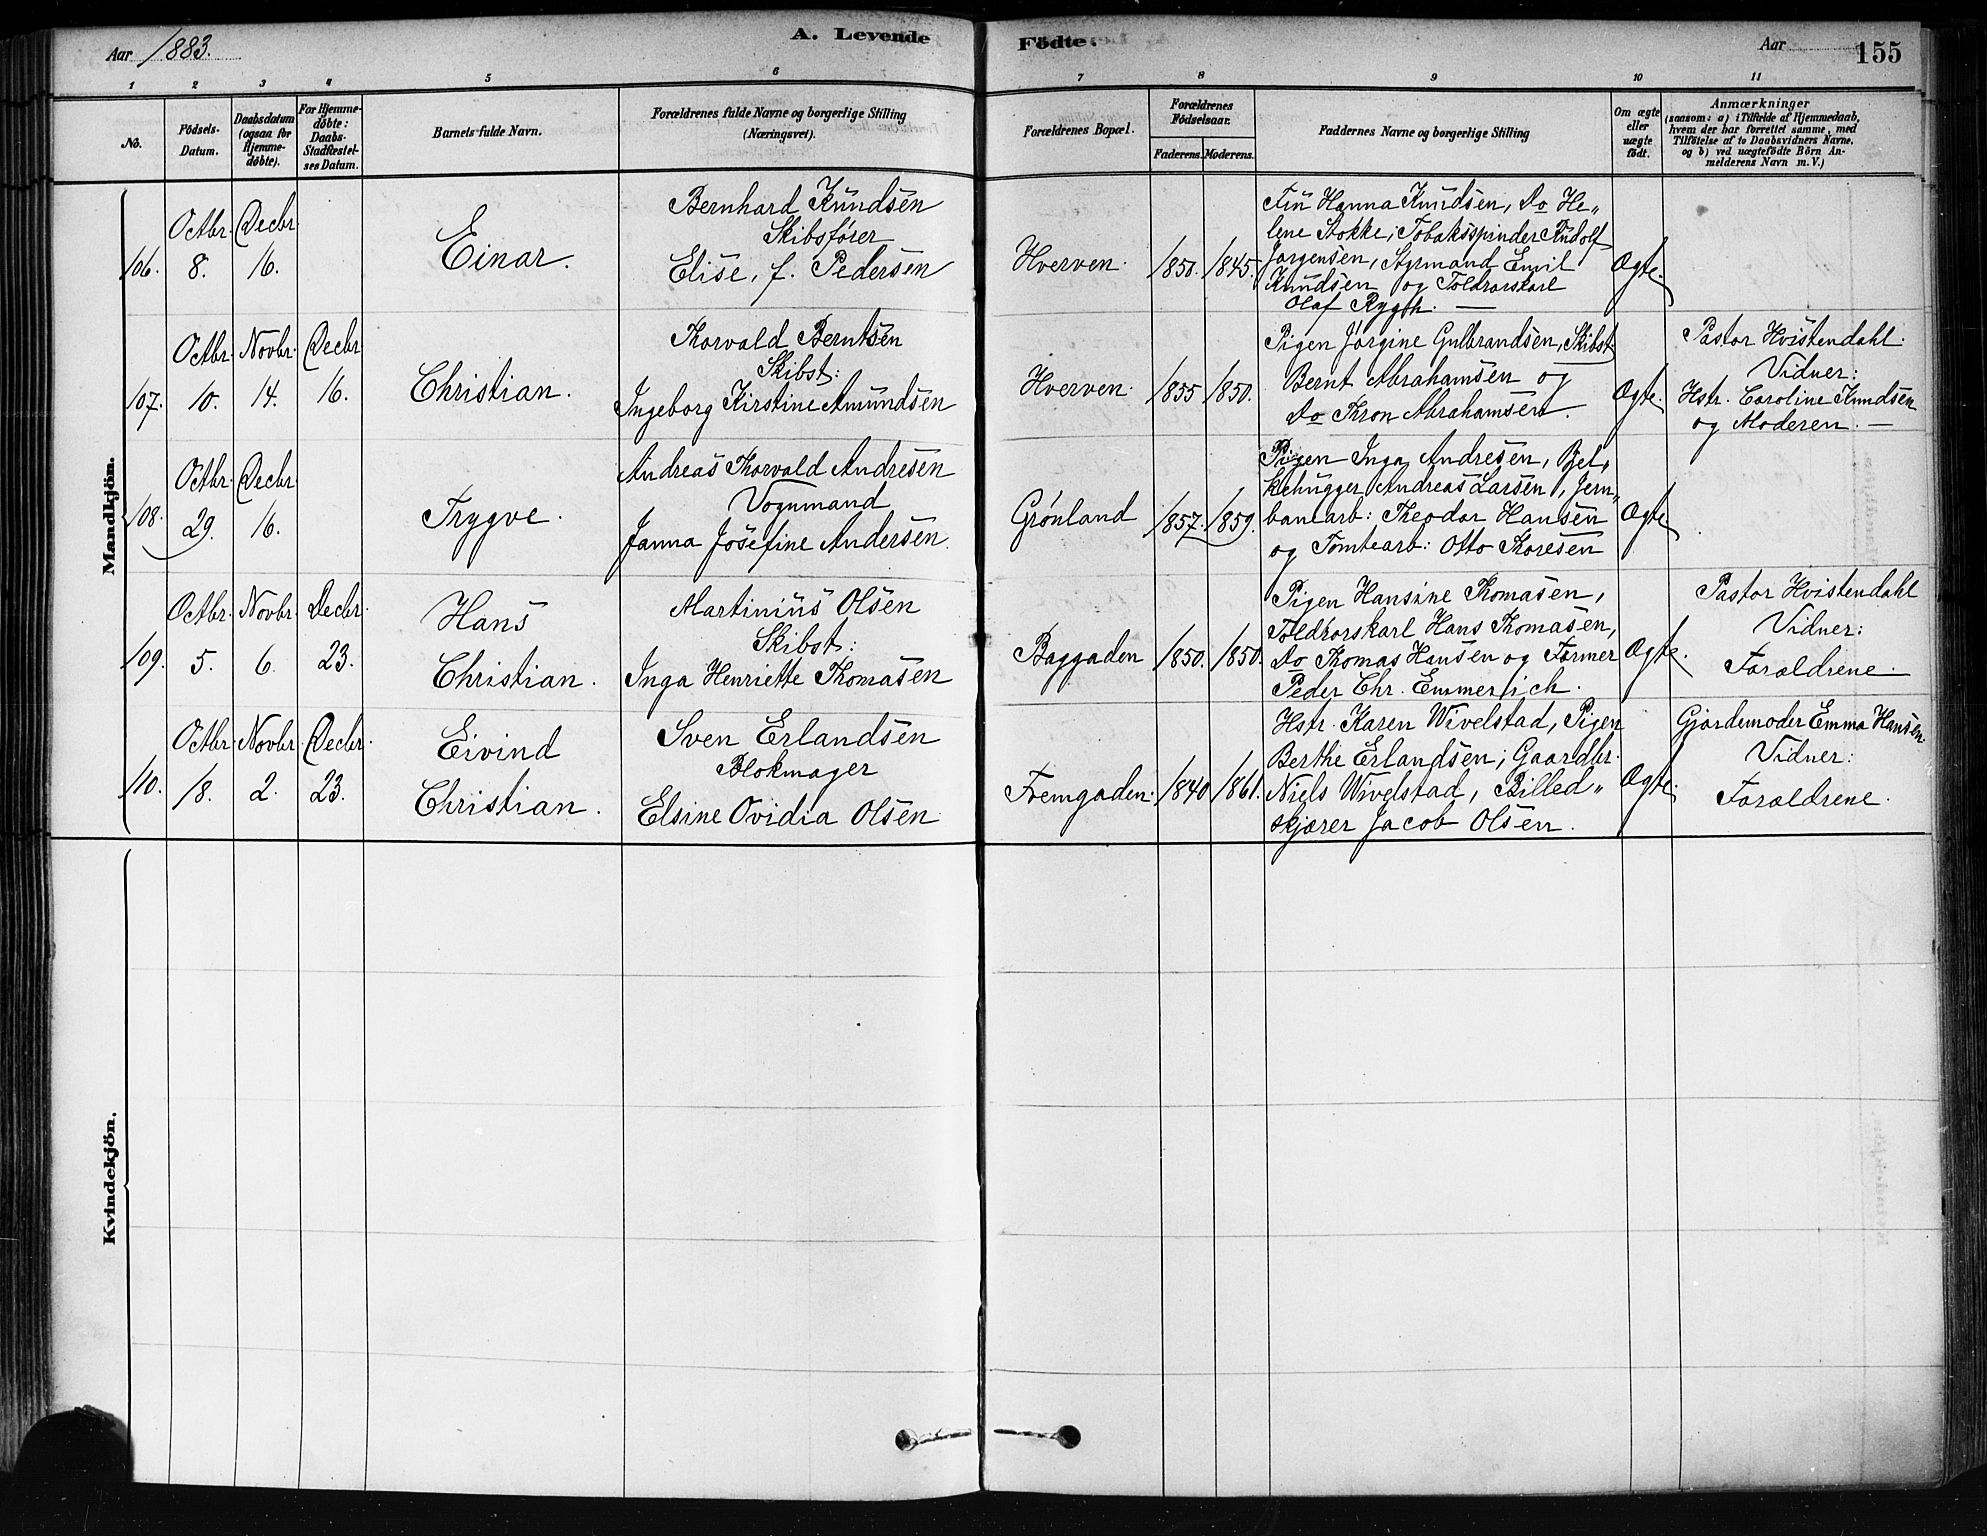 Aar 1883.
A. Levende
Födte.
Aar
155
1 2 3 4 5 6 7 8 9 10 11
No.
Födsels-
Datum.
Daabsdatum
(ogsaa for
Hjemme-
döbte).
For Hjemme-
döbte:
Daabs-
Stadfæstel-
ses Datum.
Barnets fulde Navn.
Forældrenes fulde Navne og borgerlige Stilling
(Næringsvei).
Forældrenes Bopæl.
Forældrenes
Födselsaar.
Faderens. Moderens.
Faddernes Navne og borgerlige Stilling
Om ægte
eller
uægte
födt.
Anmærkninger
(saasom: a) i Tilfælde af Hjemmedaab,
hvem der har forrettet samme, med
Tilföielse af to Daabsvidners Navne,
og b) ved uægtefödte Börn An-
melderens Navn m. V.)
Mandkjön.
106.
Octbr.
8.
Decbr
16.
Einar.
Bernhard Knudsen
Skibsfører
Elise, f. Pedersen
Hverven.
1850. 1845.
Hanna Knudsen, Do He-
lene Stokke, Tobaksspinder Rudolf
Jørgensen, Styrmand Emil
Knudsen og Toldrorskarl
Olaf Rygh. —
Ægte.
107.
Octbr.
10.
Novbr.
14.
Decbr
16.
Christian.
Thorvald Berntsen
Skibst:
Ingeborg Kirstine Amundsen
Hverven.
1855 1850.
Pigen Jørgine Gulbrandsen, Skibst.
Bernt Abrahamsen og
Do Thron Abrahamsen.
Ægte.
Pastor Hvistendahl.
Vidner:
Hstr. Caroline Knudsen
og Moderen. —
108.
Octbr.
29.
Decbr.
16.
Trygve.
Andreas Thorvald Andresen
Vognmand
Janna Josefine Andersen.
Grønland
1857. 1859.
Pigen Inga Andresen, Bjel-
kehugger Andreas Larsen, Jern-
banearb: Theodor Hansen
og Tomtearb: Otto Thoresen
Ægte
109.
Octbr.
5.
Novbr.
6.
Decbr.
23.
Hans
Christian.
Martinius Olsen
Skibst:
Inga Henriette Thomasen
Baggaden
1850. 1850.
Pigen Hansine Thomasen,
Toldrorskarl Hans Thomasen,
Do Thomas Hansen og Former
Peder Chr. Emmerich.
Ægte.
Pastor Hvistendahl
Vidner:
Forældrene.
110.
Octbr
18.
Novbr.
2.
Decbr.
23.
Eivind
Christian.
Sven Erlandsen
Blokmager
Elsine Ovidia Olsen
Fremgaden.
1840 1861.
Hstr. Karen Wivelstad, Pigen
Berthe Erlandsen, Gaardbr.
Niels Wivelstad, Billed-
skjærer Jacob Olsen.
Ægte.
Gjordemoder Emma Hansen.
Vidner:
Forældrene.
Kvindekjön.